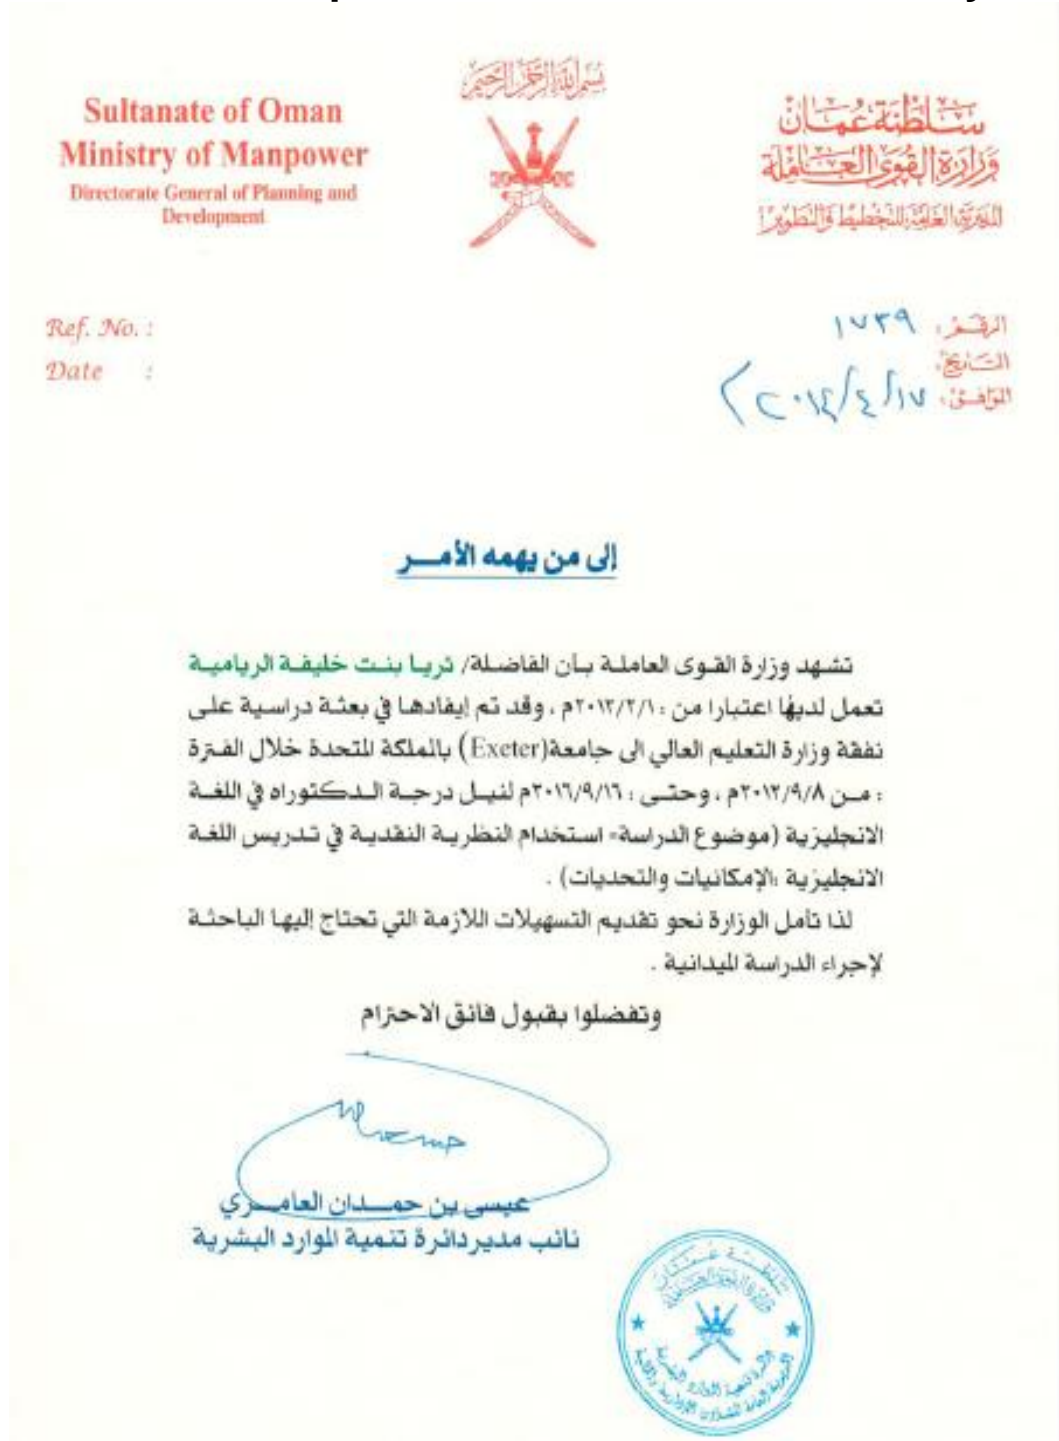 بسم الله الرحمن الرحيم
Sultanate of Oman
Ministry of Manpower
Directorate General of Planning and
Development
سلطنة عمان
وزارة القوى العاملة
المديرية العامة للتخطيط والتطوير
Ref. No. :
Date :
الرقم: ١٧٣٩
التاريخ:
الموافق: ١٧/٤/٢٠١٤
إلى من يهمه الأمــر
تشهد وزارة القوى العاملة بأن الفاضلة/ ثريا بنت خليفة الريامية
تعمل لديها اعتبارا من : ٢٠١٢/٢/١م ، وقد تم إيفادها في بعثة دراسية على
نفقة وزارة التعليم العالي الى جامعة(Exeter) بالملكة المتحدة خلال الفترة
: من ٢٠١٢/٩/٨م ، وحتى : ٢٠١٦/٩/١٦م لنيل درجة الدكتوراه في اللغة
الانجليزية (موضوع الدراسة= استخدام النظرية النقدية في تدريس اللغة
الانجليزية :الإمكانيات والتحديات) .
لذا تأمل الوزارة نحو تقديم التسهيلات اللازمة التي تحتاج إليها الباحثة
لإجراء الدراسة الميدانية .
وتفضلوا بقبول فائق الاحترام
عيسى بن حمــدان العامــري
نائب مدير دائرة تنمية الموارد البشرية
سلطنة عمان
وزارة القوى العاملة
دائرة تنمية الموارد البشرية
المديرية العامة للشؤون الإدارية والمالية